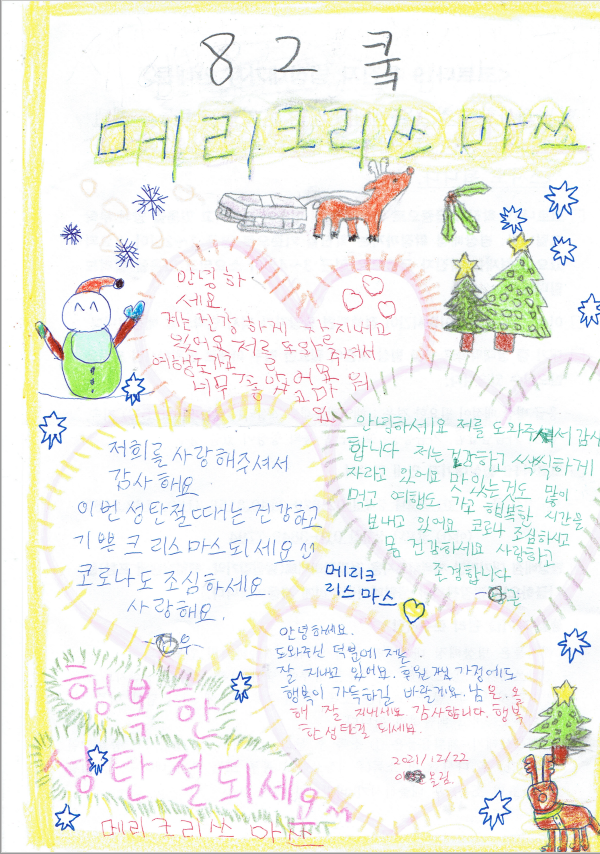 82쿡
메리크리쓰마쓰
안녕하
세요
저는 건강하게 잘 지내고
있어요 저를 도와
주셔서
여행도 가고
너무 좋았어요 고마워
요
안녕하세요 저를 도와주셔서 감사
합니다 저는 건강하고 씩씩하게
자라고 있어요 맛있는것도 많이
먹고 여행도 가고 행복한 시간을
보내고 있어요 코로나 조심하시고
몸 건강하세요 사랑하고
존경합니다
근
저희를 사랑해주셔서
감사해요
이번 성탄절때는 건강하고
기쁜 크리스마스되세요
코로나도 조심하세요
사랑해요
우
메리크
리스마스
안녕하세요.
도와주신 덕분에 저는
잘 지내고 있어요. 후원자님 가정에도
행복이 가득하길 바랄게요. 남은 올
해 잘 지내세요 감사합니다. 행복
한 성탄절 되세요.
2021/12/22
이 올림
행복한
성탄절되세요
메리크리쓰마쓰